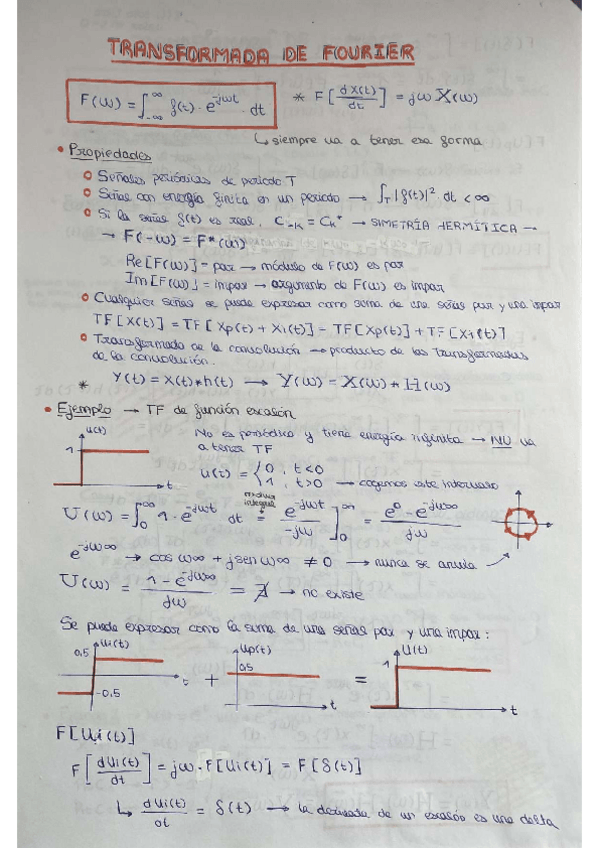 TRANSFORMADA DE FOURIER
F(ω) = ∫_{-∞}^{∞} f(t) · e^{-jωt} · dt   * F[dX(t)/dt] = jω X(ω)
↳ siempre va a tener esa forma
• Propiedades
○ Señales periódicas de periodo T
○ Señal con energía finita en un periodo → ∫_T |f(t)|² dt < ∞
○ Si la señal f(t) es real, C_{-k} = C_k* → SIMETRÍA HERMÍTICA →
→ F(-ω) = F*(ω)
Re[F(ω)] = par → módulo de F(ω) es par
Im[F(ω)] = impar → argumento de F(ω) es impar
○ Cualquier señal se puede expresar como suma de una señal par y una impar
TF[X(t)] = TF[Xp(t) + Xi(t)] = TF[Xp(t)] + TF[Xi(t)]
○ Transformada de la convolución → producto de las transformadas
de la convolución.
* Y(t) = X(t)*h(t) → Y(ω) = X(ω) * H(ω)
• Ejemplo → TF de función escalón
u(t)
1
t
No es periódica y tiene energía infinita → NO va
a tener TF
u(t) = { 0 , t<0
1 , t>0 → cogemos este intervalo
U(ω) = ∫_0^∞ 1 · e^{-jωt} dt = e^{-jωt}/-jω ]_0^∞ = e^0 - e^{-jω∞}/jω
integral
e^{-jω∞} → cos ω∞ + j sen ω∞ ≠ 0 → nunca se anula
U(ω) = 1 - e^{-jω∞}/jω = ∄ → no existe
Se puede expresar como la suma de una señal par y una impar:
0,5 Ui(t) -0,5 t + Up(t) 0,5 t = U(t) 1 t
F[Ui(t)]
F[dUi(t)/dt] = jω · F[Ui(t)] = F[δ(t)]
↳ dUi(t)/dt = δ(t) → la derivada de un escalón es una delta